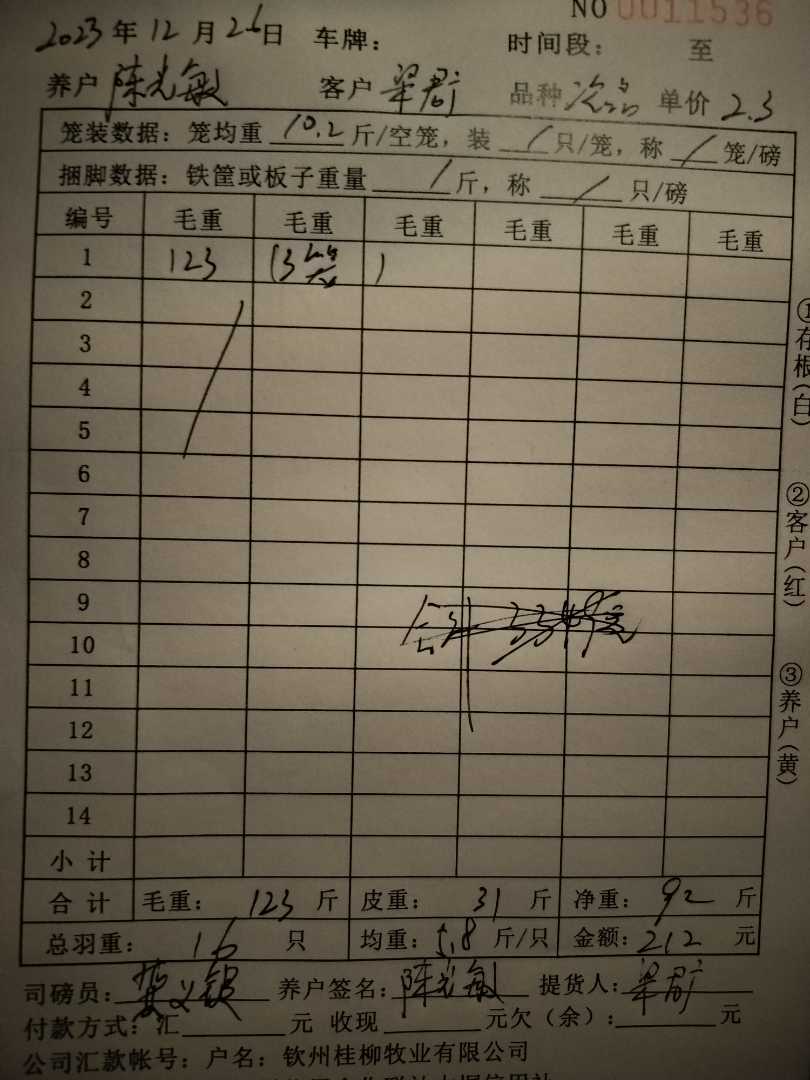 NO 0011536
2023年12月26日 车牌: 时间段: 至
养户 陈光敏 客户 梁君广 品种 次品 单价 2.3
笼装数据: 笼均重 10.2 斤/空笼, 装 / 只/笼, 称 / 笼/磅
捆脚数据: 铁筐或板子重量 / 斤, 称 / 只/磅
编号 毛重 毛重 毛重 毛重 毛重 毛重
1 123 (3笼)
2
3
4
5
6
7
8
9
10
11
12
13
14
小计
合计 毛重: 123 斤 皮重: 31 斤 净重: 92 斤
总羽重: 16 只 均重: 5.8 斤/只 金额: 212 元
司磅员: 养户签名: 陈光敏 提货人: 梁君广
付款方式: 汇 元 收现 元欠(余): 元
公司汇款帐号: 户名: 钦州桂柳牧业有限公司
①存根(白)
②客户(红)
③养户(黄)